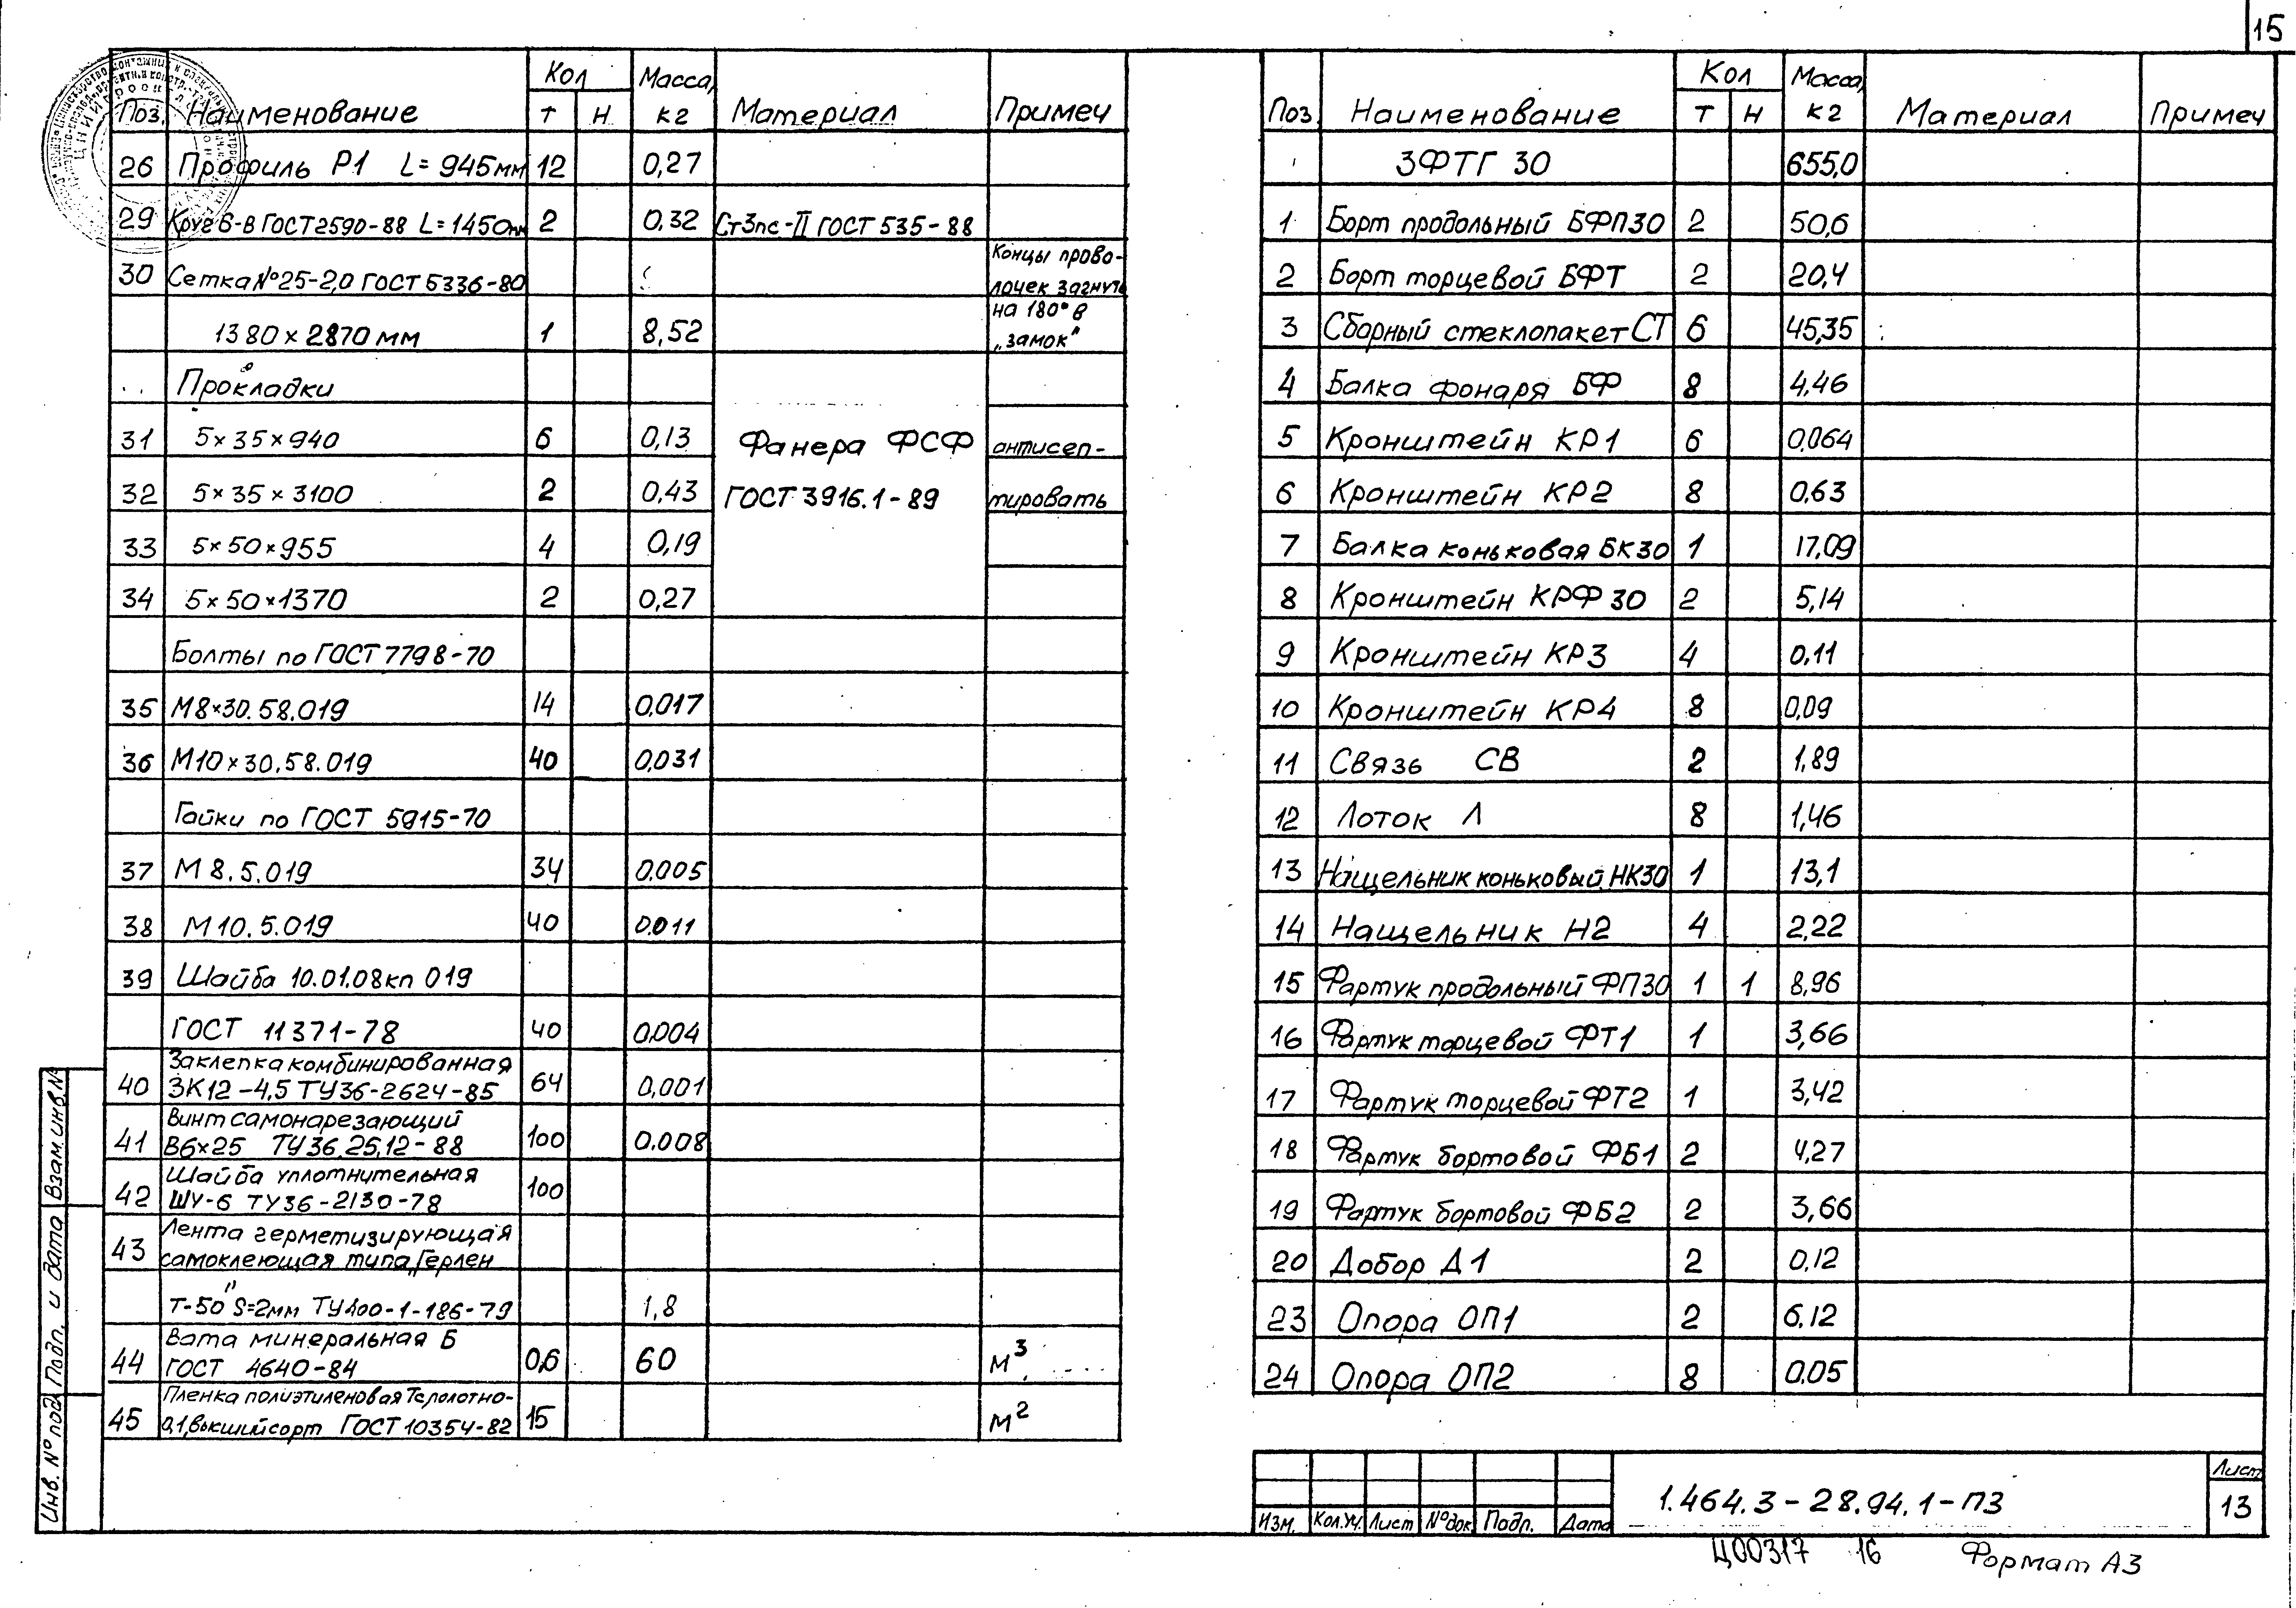 15
Поз. Наименование Кол т н Масса, кг Материал Примеч
26 Профиль Р1 L=945мм 12 0,27
29 Круг 6-В ГОСТ 2590-88 L=1450мм 2 0,32 Ст3пс-II ГОСТ 535-88
30 Сетка №25-2,0 ГОСТ 5336-80 Концы прово-
лочек загнуть
1380×2870 мм 1 8,52 на 180° в
„замок"
Прокладки
31 5×35×940 6 0,13 Фанера ФСФ антисеп-
32 5×35×3100 2 0,43 ГОСТ 3916.1-89 тировать
33 5×50×955 4 0,19
34 5×50×1370 2 0,27
Болты по ГОСТ 7798-70
35 М8×30.58.019 14 0,017
36 М10×30.58.019 40 0,031
Гайки по ГОСТ 5915-70
37 М8.5.019 34 0,005
38 М10.5.019 40 0,011
39 Шайба 10.01.08кп 019
ГОСТ 11371-78 40 0,004
Заклепка комбинированная
40 ЗК12-4,5 ТУ36-2624-85 64 0,001
Винт самонарезающий
41 В6×25 ТУ36.25.12-88 100 0,008
Шайба уплотнительная
42 ШУ-6 ТУ36-2130-78 100
Лента герметизирующая
43 самоклеющая типа „Герлен
Т-50" S=2мм ТУ400-1-186-79 1,8
Вата минеральная Б
44 ГОСТ 4640-84 0,6 60 м³
Пленка полиэтиленовая Тс,полотно-
45 0,1,высший сорт ГОСТ 10354-82 15 м²
Поз. Наименование Кол т н Масса, кг Материал Примеч
ЗФТГ 30 655,0
1 Борт продольный БФП30 2 50,6
2 Борт торцевой БФТ 2 20,4
3 Сборный стеклопакет СТ 6 45,35
4 Балка фонаря БФ 8 4,46
5 Кронштейн КР1 6 0,064
6 Кронштейн КР2 8 0,63
7 Балка коньковая БК30 1 17,09
8 Кронштейн КРФ30 2 5,14
9 Кронштейн КР3 4 0,11
10 Кронштейн КР4 8 0,09
11 Связь СВ 2 1,89
12 Лоток Л 8 1,46
13 Нащельник коньковый НК30 1 13,1
14 Нащельник Н2 4 2,22
15 Фартук продольный ФП30 1 1 8,96
16 Фартук торцевой ФТ1 1 3,66
17 Фартук торцевой ФТ2 1 3,42
18 Фартук бортовой ФБ1 2 4,27
19 Фартук бортовой ФБ2 2 3,66
20 Добор Д1 2 0,12
23 Опора ОП1 2 6,12
24 Опора ОП2 8 0,05
Взам. инв. №
Подп. и дата
Инв. № подл
Изм. Кол.уч. Лист №док Подп. Дата
1.464.3-28.94.1-ПЗ
Лист
13
Ц00317 16 Формат А3